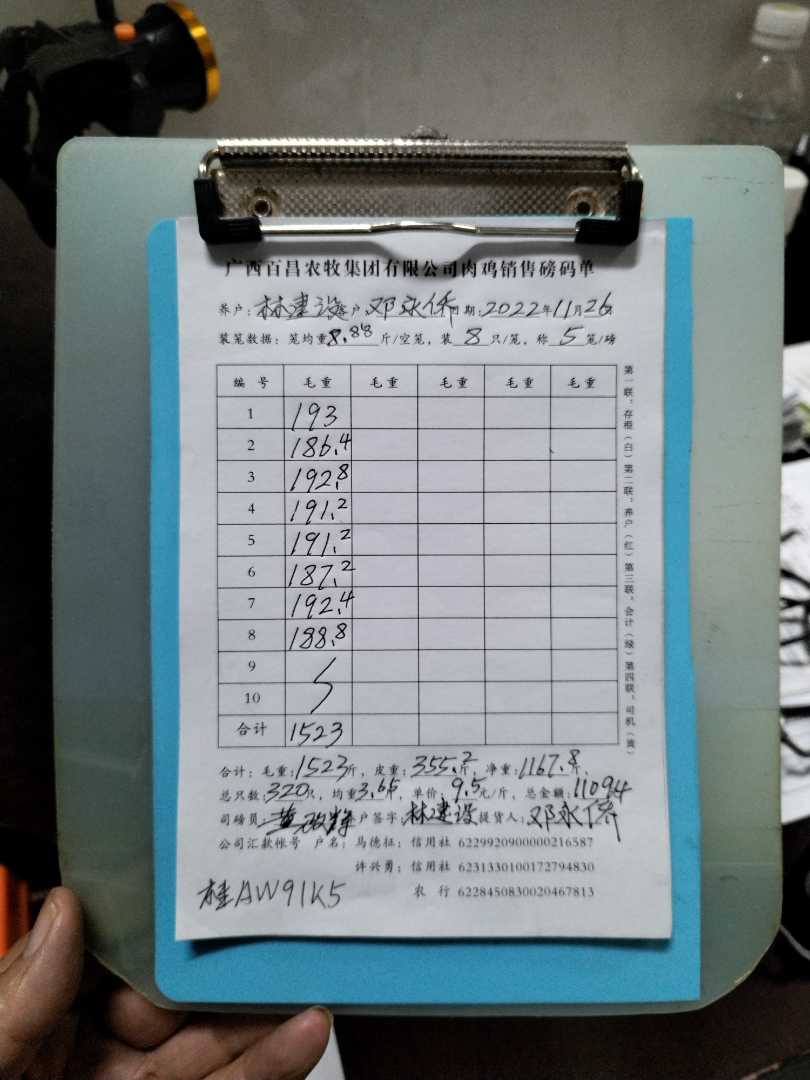 广西百昌农牧集团有限公司肉鸡销售磅码单
养户：林建设 客户：邓永侨 日期：2022年11月26日
装笼数据：笼均重8.88斤/空笼，装8只/笼，称5笼/磅
编号 毛重 毛重 毛重 毛重 毛重
1 193
2 186.4
3 192.8
4 191.2
5 191.2
6 187.2
7 192.4
8 188.8
9
10
合计 1523
合计：毛重：1523斤，皮重：355.2斤，净重：1167.8斤，
总只数：320只，均重3.65斤，单价：9.5元/斤，总金额：11094
司磅员： 养户签字：林建设 提货人：邓永侨
公司汇款帐号 户名：马德征：信用社 6229920900000216587
许兴勇：信用社 6231330100172794830
农行 6228450830020467813
桂AW91K5
第一联：存根（白）第二联：养户（红）第三联：会计（绿）第四联：司机（黄）